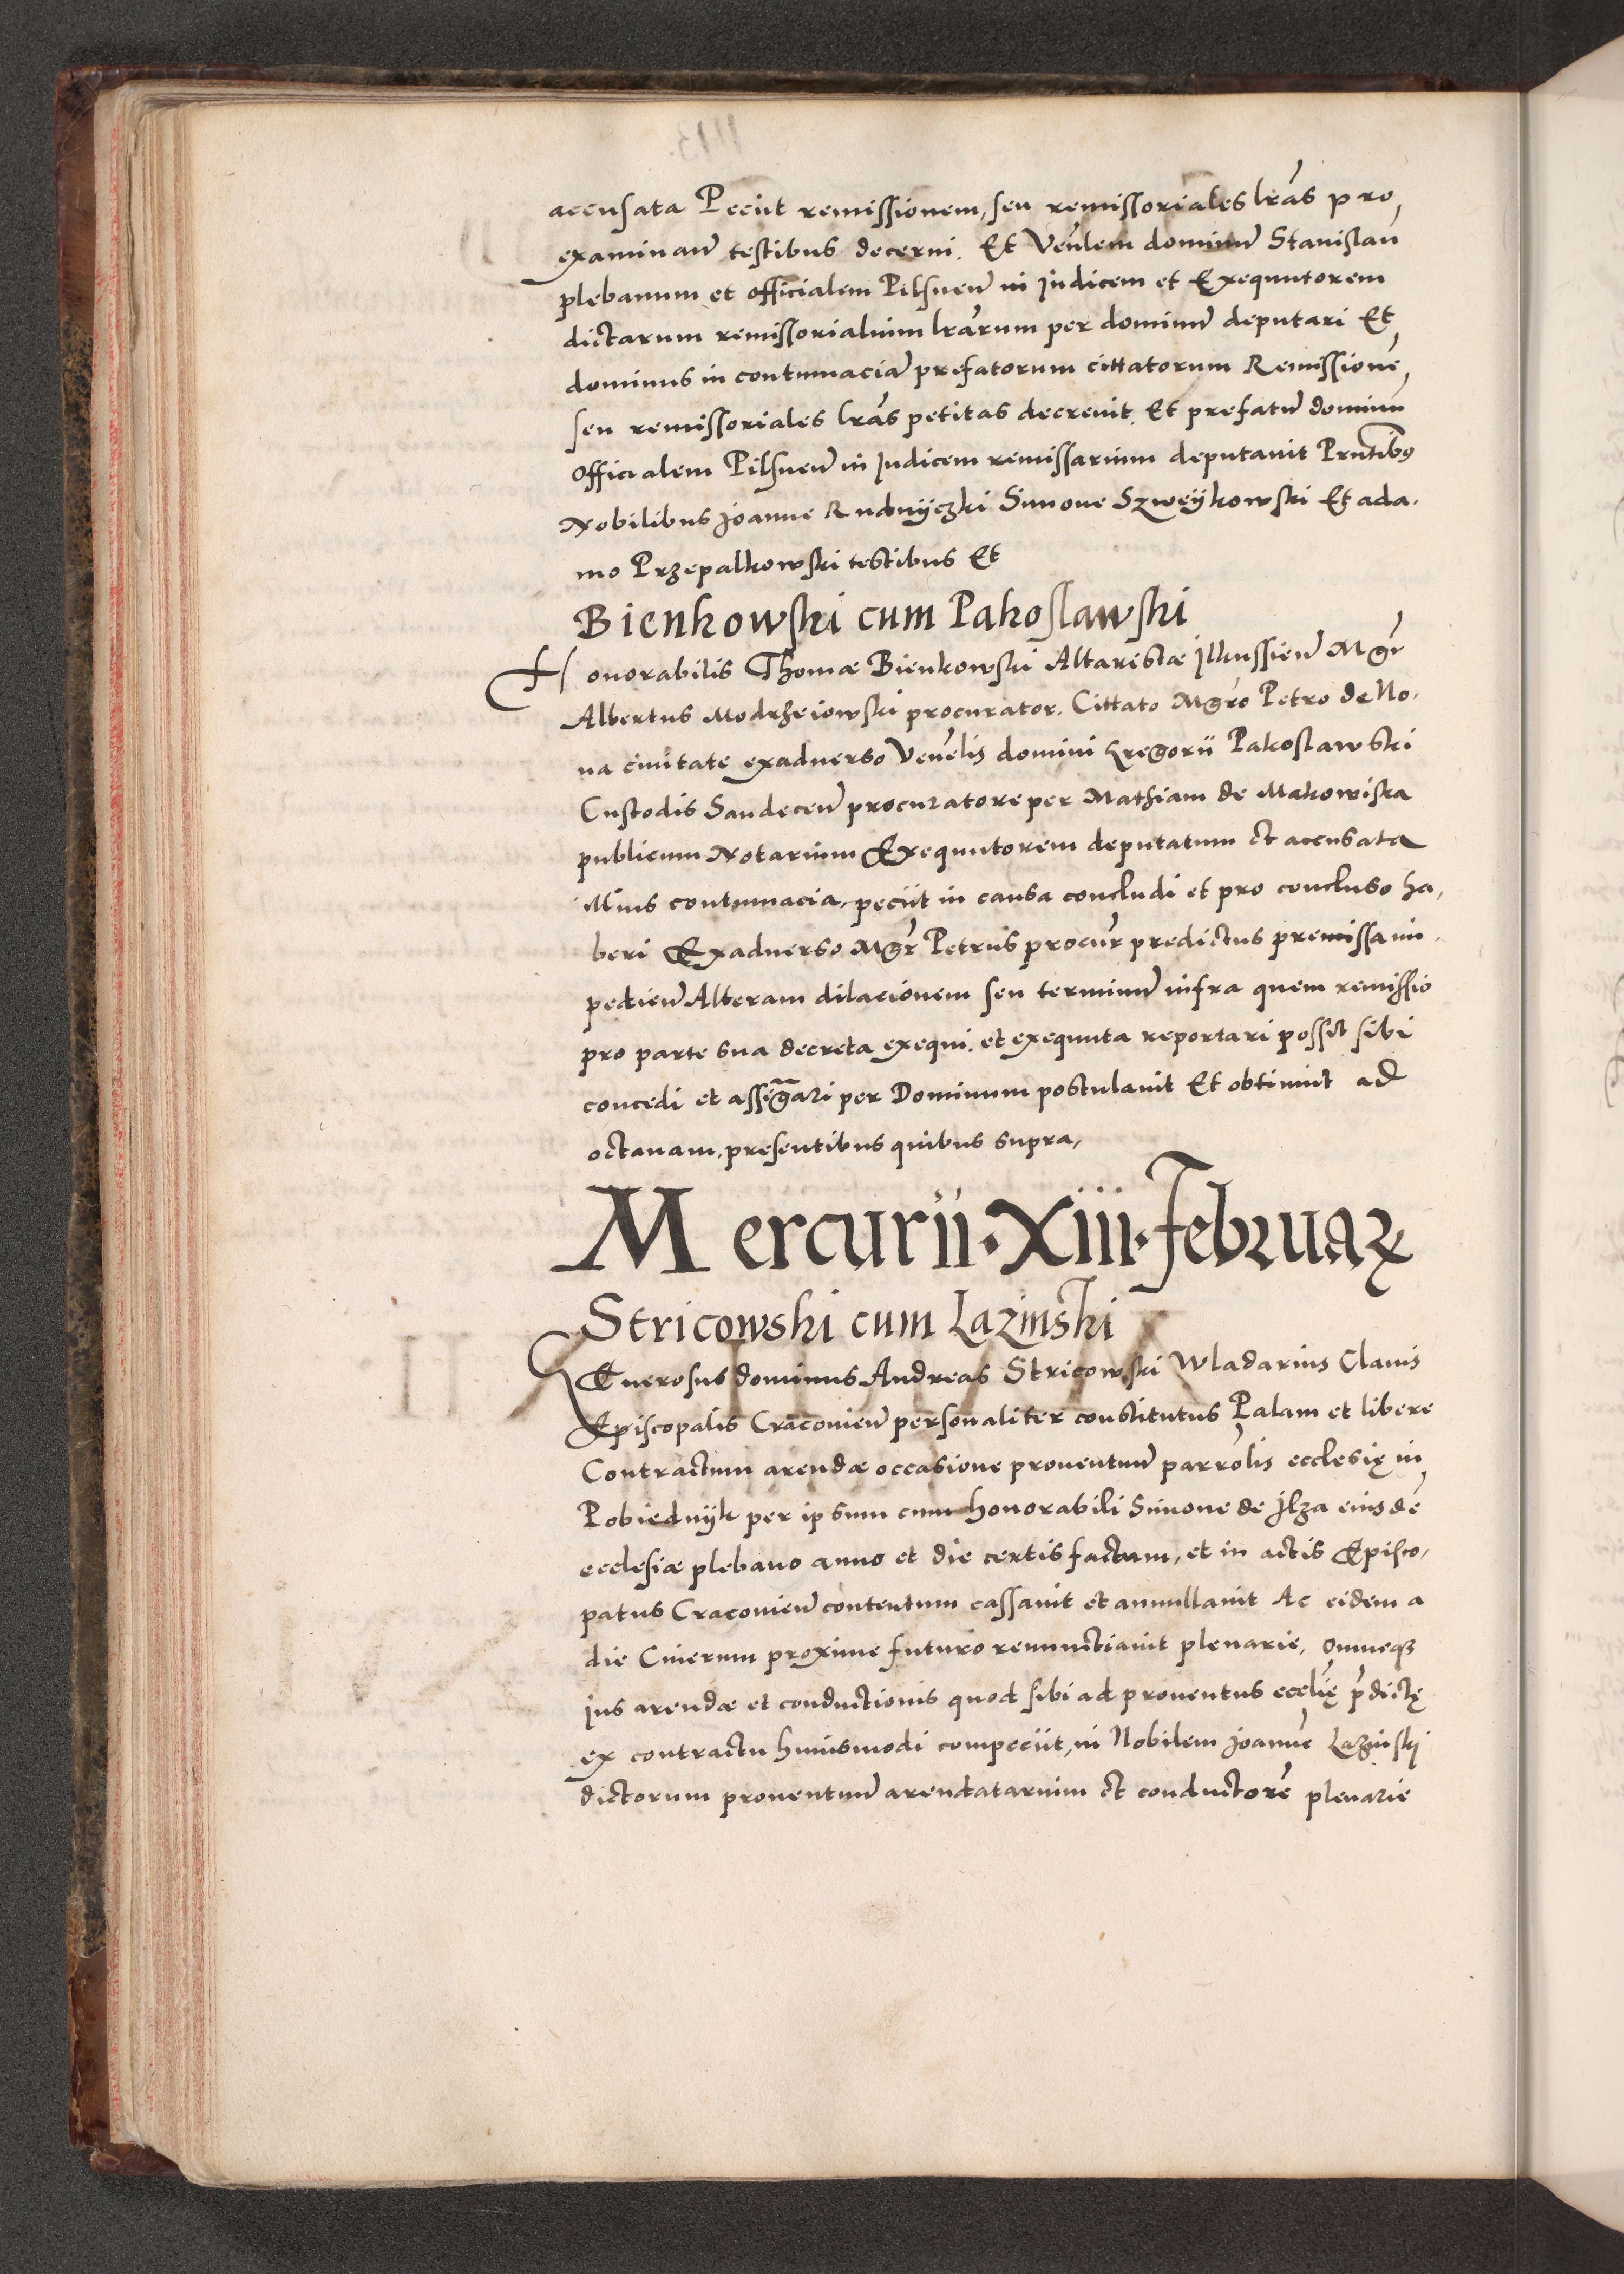 accusata Peciit remissionem, seu remissoriales lrãs pro,
examinanđ testibus decerni. Et Venłem dominũ Stanislau
plebanum et officialem Pilsneñ in Judicem et Exequutorem
dictarum remissorialium lrãrum per dominũ deputari Et
dominus in contumaciã prefatorum cittatorum Remissionẽ,
seu remissoriales lrãs petitas decreuit. Et prefatũ dominũ
Officialem Pilsneñ in Judicem remissarium deputauit Prñtibus
Nobilibus Joanne Rudnyczki Simone Szweykowski Et ada.
mo Przepalkowski testibus Et
Bienkowski cum Pakoslawski
Honorabilis Thomæ Bienkowski Altaristæ Ilkussieñ Mgr̃
Albertus Modrzeiowski procurator. Cittato Mgrõ Petro de No.
ua ciuitate exaduerso Venẽlis domini Gregorii Pakoslawski
Custodis Sandeceñ procuratore per Mathiam de Makowiska
publicum Notarium Exequutorem deputatum et accusata
illius contumacia, peciit in causa concludi et pro concluso ha,
beri Exaduerso Mgr̃ Petrus procur̃ predictus premissa im.
pedieñ Alteram dilacionem seu terminũ infra quem remissio
pro parte sua decreta exequi. et exequuta reportari possit sibi
concedi et assig̃ari per Dominum postulauit Et obtinuit ad
octauam. presentibus quibus supra,
Mercurii · Xiii · Februaꝝ
Stricowski cum Lazinski
GEnerosus dominus Andreas Stricowski Wladarius Clauis
Episcopalis Cracouieñ personaliter constitutus Palam et libere
Contractum arendæ occasione prouentuũ parrõlis ecclesię in
Pobiednyk per ipsum cum honorabili Simone de Jlza eiusdẽ
ecclesiæ plebano anno et die certis factum, et in actis Episco,
patus Cracouieñ contentum cassauit et annullauit Ac eidem a
die Cinerum proxime futuro renunctiauit plenarie, Omneqȝ
jus arendæ et conductionis quod sibi ad prouentus eccłię p̃dictę
ex contractu huiusmodi compeciit, in Nobilem Joannẽ Lazinski
dictorum prouentuũ arendatarium et conductorẽ plenarie